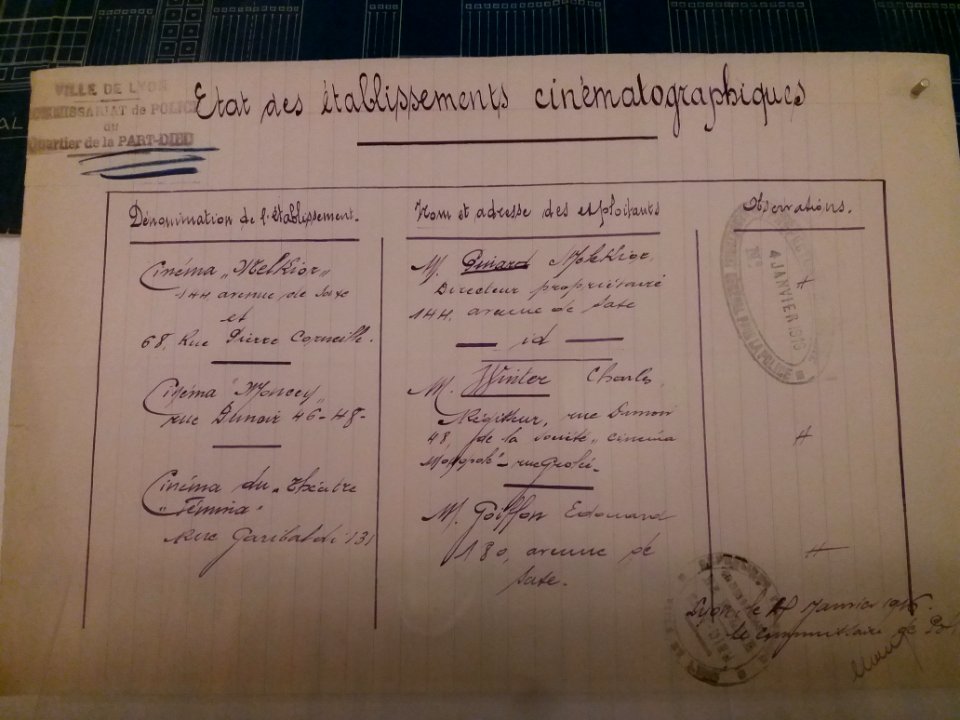 VILLE DE LYON
COMMISSARIAT de POLICE
du
Quartier de la PART-DIEU
Etat des établissements cinématographiques
Dénomination de l'établissement.
Cinéma „Melkior„
144 avenue de Saxe
et
68, Rue Pierre Corneille.
Cinéma "Moncey"
rue Dunoir 46-48-
Cinéma du „théâtre
„Fémina"
Rue Garibaldi 131
Nom et adresse des exploitants
M. Melkior,
Directeur propriétaire
144, avenue de Saxe
— id —
M. Winter Charles,
Régisseur, rue Dunoir
48, de la société „cinéma
Monopole" - rue Grolée.
M. Goiffon Edouard
180, avenue de
Saxe.
Observations.
4 JANVIER
Lyon, le Janvier
le commissaire de